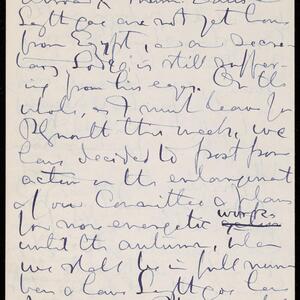 Lyttgoe are not yet home
from Egypt, as our Secre-
tary, is still suffer-
ing from his eyes. On the
whole, as I must leave for
Plymouth this week, we
have decided to post pone
action on the enlargement
of our Committee & plans
for more energetic works
until the autumn, when
we shall be in full num
ber & have Lyttgoe here